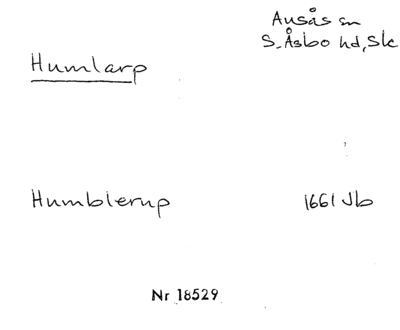 Ausås sn
S. Åsbo hd, Sk
Humlarp
Humblerup 1661 Jb
Nr 18529